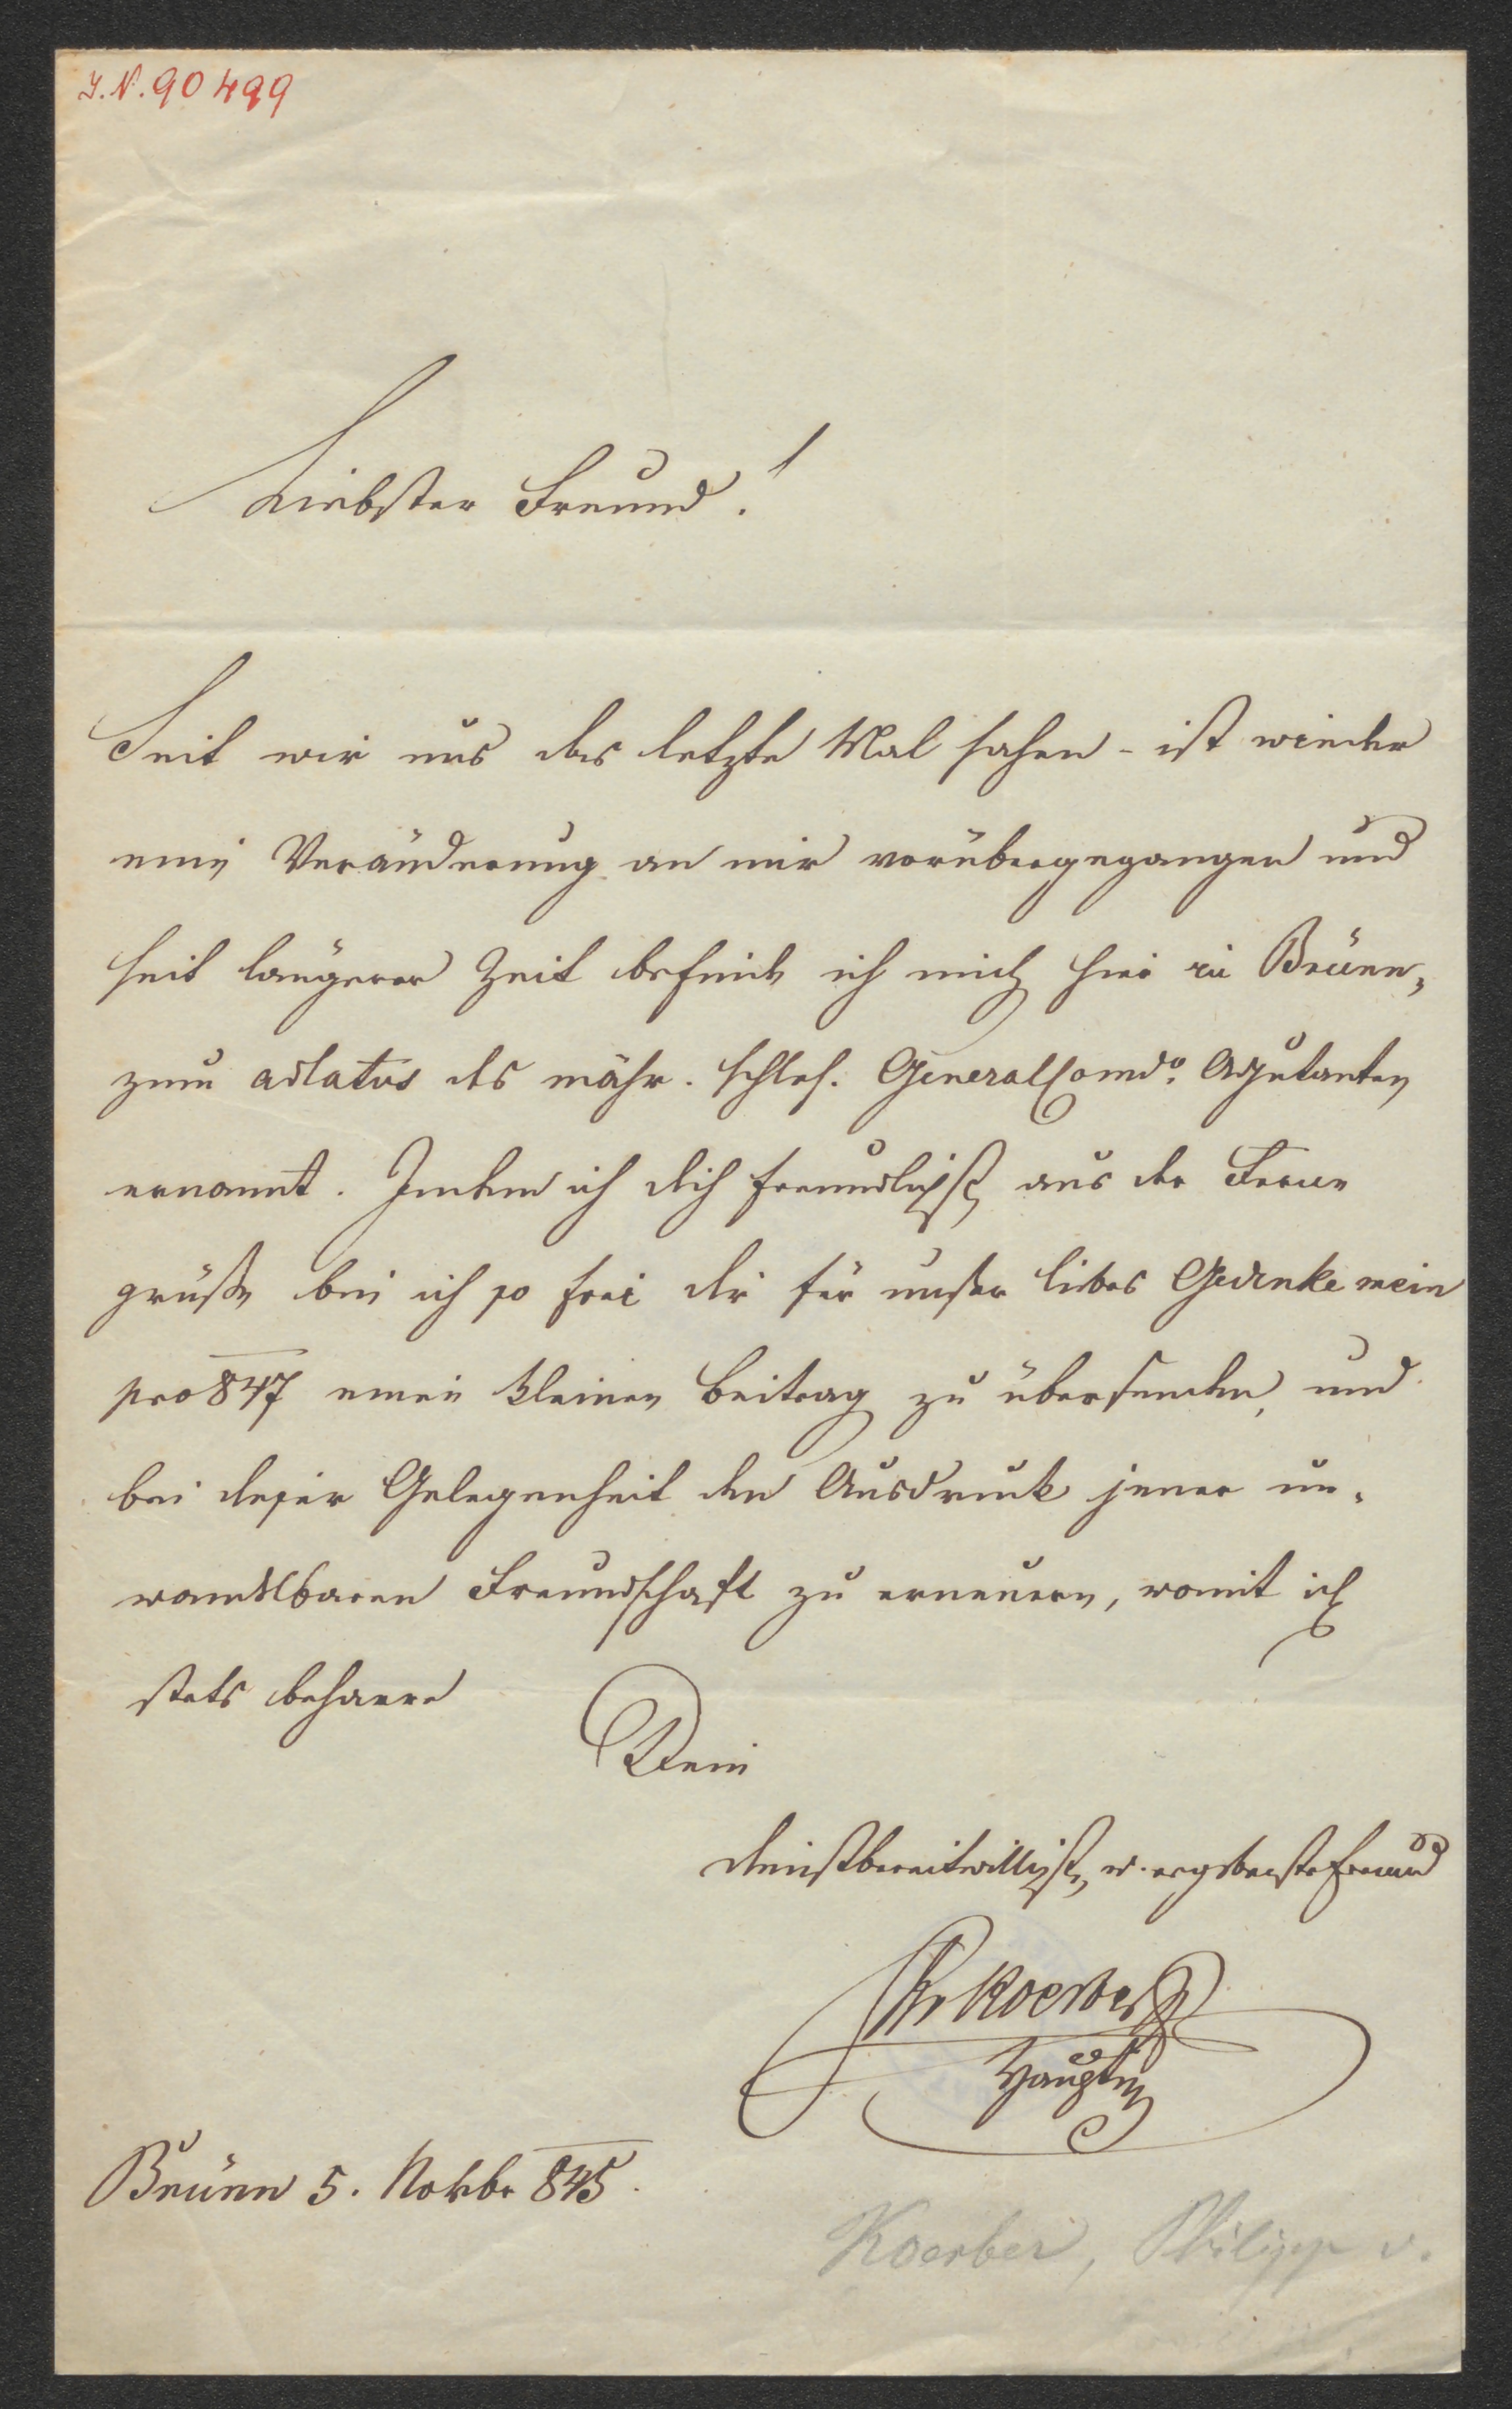 I.N. 90499
Liebster Freund!
Seit wir uns das letzte Mal sahen - ist wieder
eine Veränderung an mir vorübergegangen und
seit längerer Zeit befinde ich mich hier in Brünn,
zum adlatus des mähr. schles. General Comdo. Adjutanten
ernannt. Indem ich dich freundlichst aus der Ferne
grüße bin ich so frei dir für unser liebes Gedenke mein
pro 847 einen kleinen Beitrag zu übersenden, und
bei dieser Gelegenheit den Ausdruck jener un-
wandelbaren Freundschaft zu erneuern, womit ich
stets beharre
Dein
dienstbereitwilligster u. ergebenster Freund
Koerber
Hauptm
Brünn 5. Novbr 845.
Koerber, Philipp v.